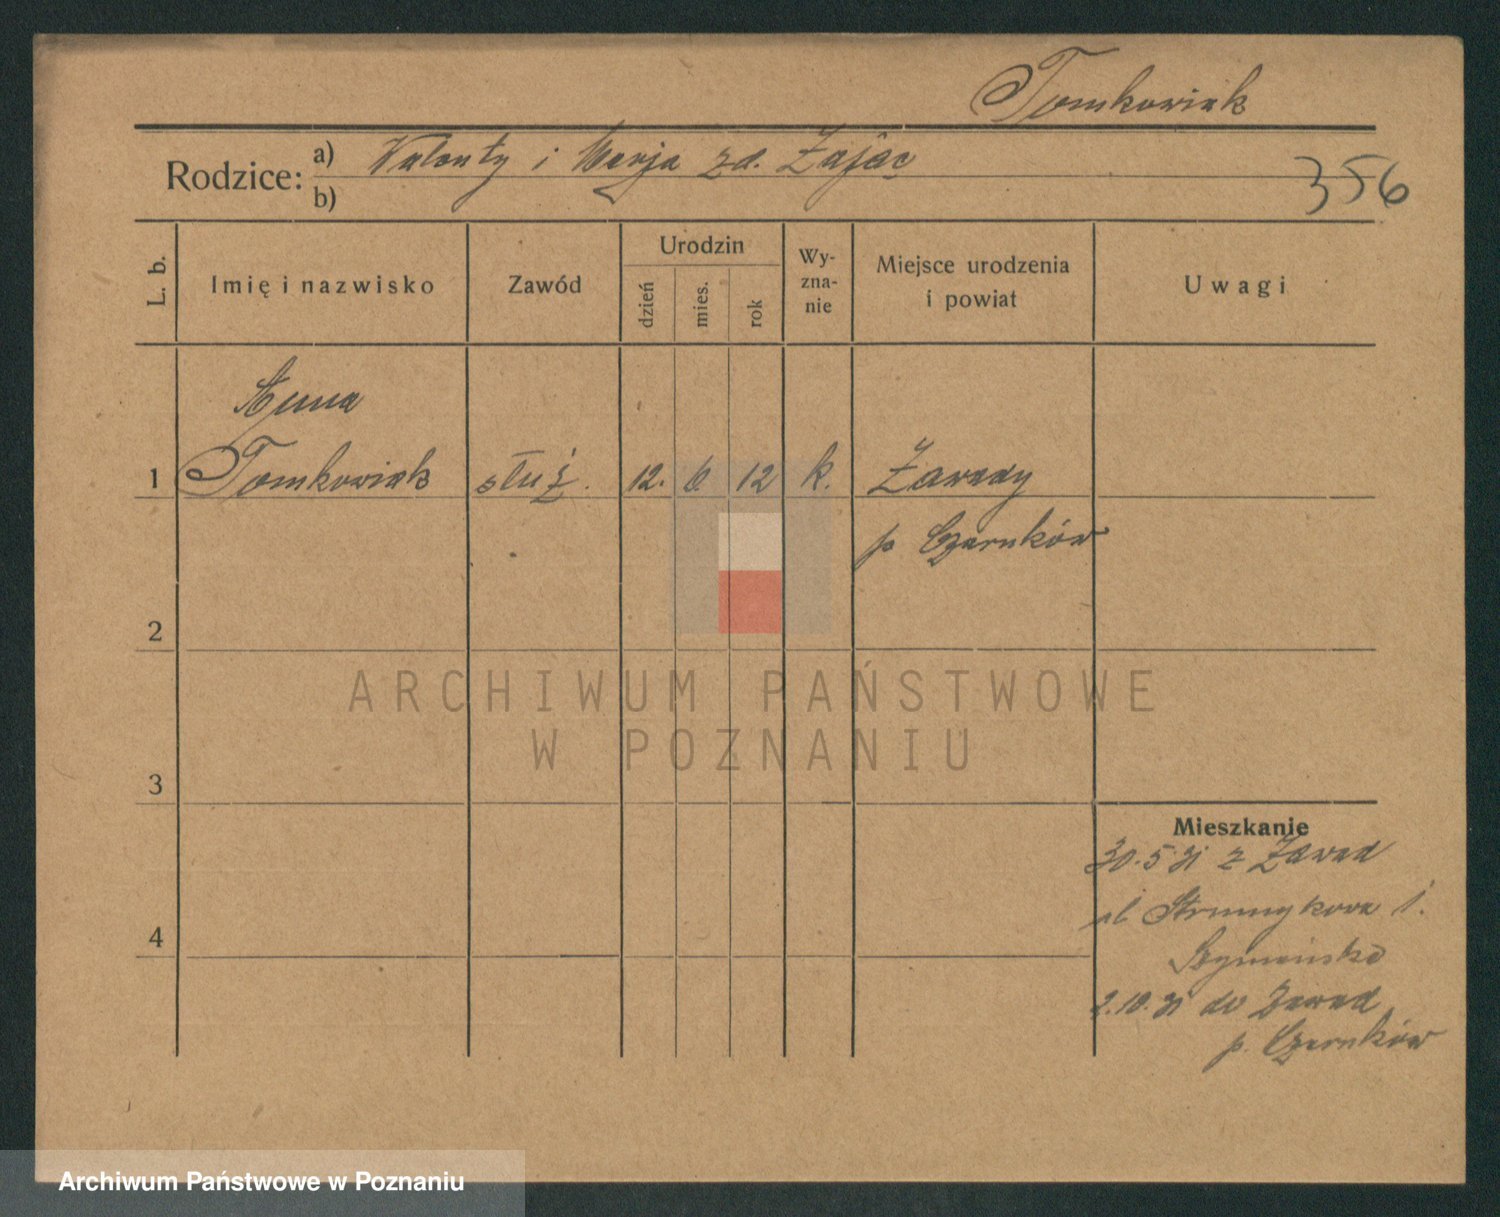 Tomkowiak
Rodzice: a) Walenty i Marja zd. Zając
b)
356
L. b.
Imię i nazwisko
Zawód
Urodzin
dzień
mies.
rok
Wy-
zna-
nie
Miejsce urodzenia
i powiat
Uwagi
Anna
1 Tomkowiak służ. 12. 6. 12 k. Zawady
p. Czarnków
2
3
4
Mieszkanie
30.5.31 z Zawad
ul. 1.
Szymańska
2.10.31 do Zawad
p. Czarnków
ARCHIWUM PAŃSTWOWE
W POZNANIU
Archiwum Państwowe w Poznaniu